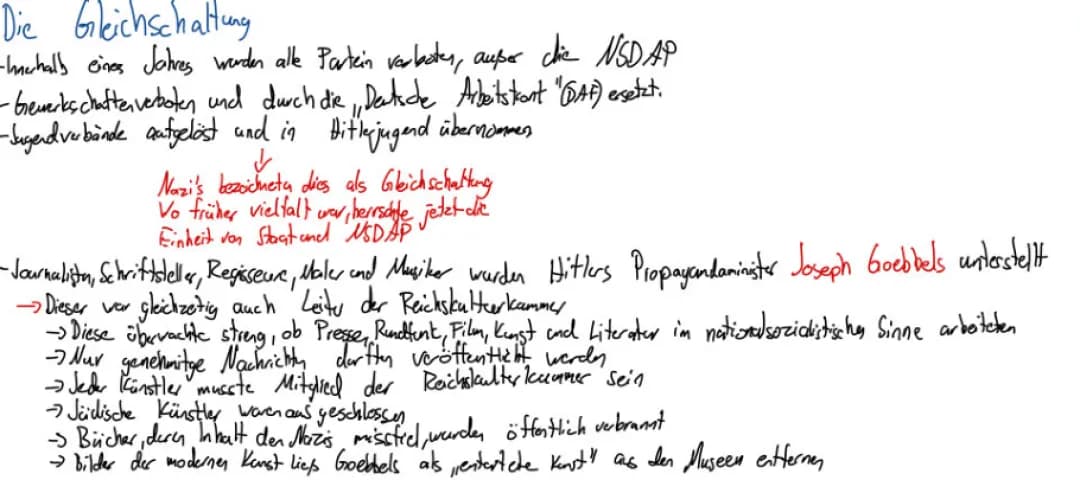 Die Gleichschaltung
-Innerhalb eines Jahres wurden alle Partein verboten, außer die NSDAP
-Gewerkschaften verboten und durch die „Deutsche Arbeitsfront "(DAF) ersetzt.
-Jugendverbände aufgelöst und in Hitlerjugend übernommen
↓
Nazi's bezeichneten dies als Gleichschaltung
Wo früher vielfalt war, herrschte jetzt die
Einheit von Staat und NSDAP
-Journalisten, Schriftsteller, Regisseure, Maler und Musiker wurden Hitlers Propagandaminister Joseph Goebbels unterstellt
→ Dieser war gleichzetig auch Leiter der Reichskulturkammer
→ Diese überwachte streng, ob Presse, Rundfunk, Film, Kunst und Literatur im nationalsozialistischen Sinne arbeiteten
→ Nur genehmitge Nachrichten durften veröffentlicht werden
→ Jeder Künstler musste Mitglied der Reichskulturkammer sein
→ Jüdische Künstler waren ausgeschlossen
→ Bücher, deren Inhalt den Nazis missfiel, wurden öffentlich verbrannt
→ Bilder der modernen Kunst ließ Goebbels als „entartete Kunst" aus den Museen entfernen